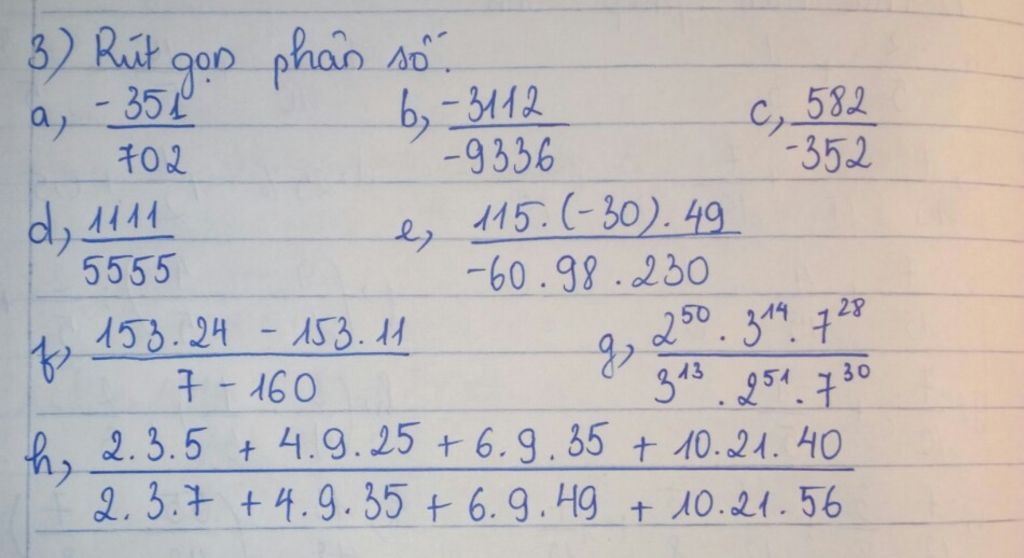 3) Rút gọn phân số:
a, -351/702 b, -3112/-9336 c, 582/-352
d, 1111/5555 e, 115.(-30).49/-60.98.230
f, 153.24 - 153.11/7 - 160 g, 2^50.3^14.7^28/3^13.2^51.7^30
h, 2.3.5 + 4.9.25 + 6.9.35 + 10.21.40/2.3.7 + 4.9.35 + 6.9.49 + 10.21.56